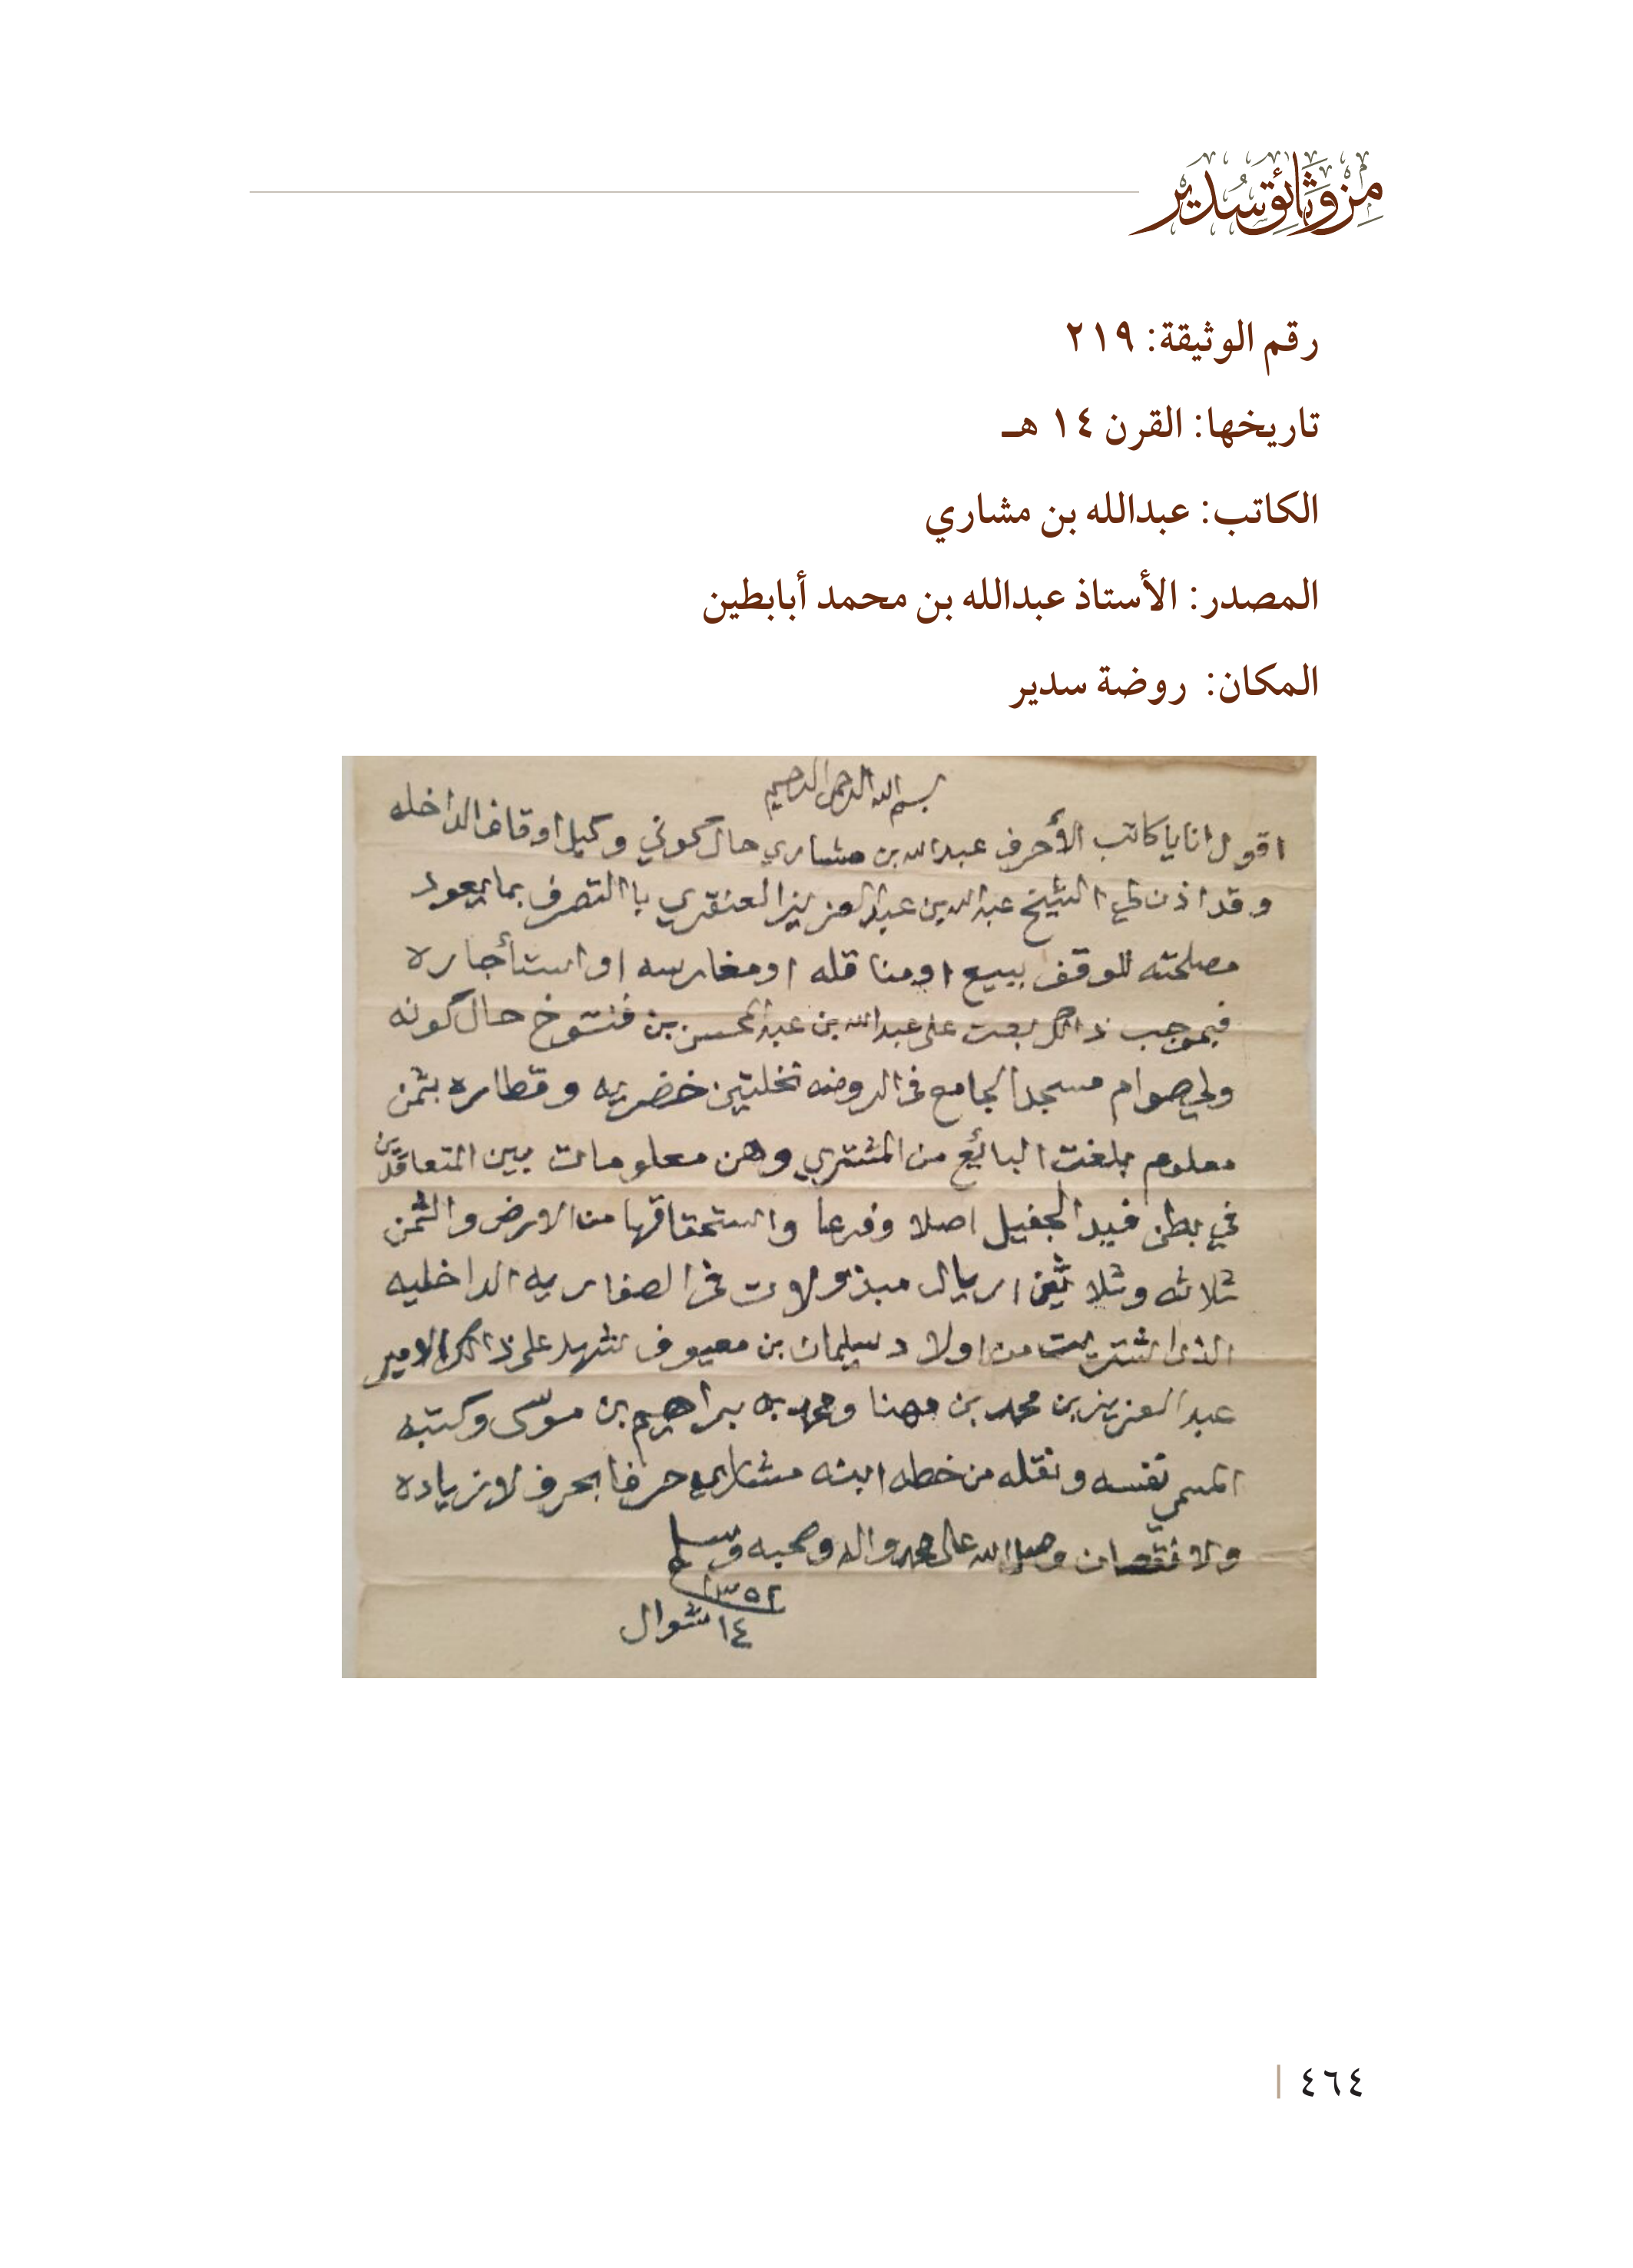 من وثائق سدير
رقم الوثيقة: ٢١٩
تاريخها: القرن ١٤ هـ
الكاتب: عبدالله بن مشاري
المصدر: الأستاذ عبدالله بن محمد أبابطين
المكان: روضة سدير
بسم الله الرحمن الرحيم
اقول انا يا كاتب الأحرف عبدالله بن مشاري حال كوني وكيل اوقاف الداخله
وقد اذن لي الشيخ عبدالله بن عبدالعزيز العنقري باالتصرف بما يعود
مصلحته للوقف ببيع او مناقله او مغارسه او استأجاره
فبموجب ذالك بعت على عبدالله بن عبدالمحسن بن فنتوخ حال كونه
ولي صوام مسجد الجامع في الروضه نخلتين خضريه وقطاره بثمن
معلوم بلغت البائع من المشتري وهن معلومات بين المتعاقدين
في بطن فيد الجفيل اصلا وفرعا واستحقاقها من الارض والثمن
ثلاثه وثلاثين اريال مبذولات في الصفاريه الداخليه
الذى اشتريت من اولاد سليمان بن معيوف شهد على ذالك الامير
عبدالعزيز بن محمد بن مهنا ومحمد بن براهيم بن موسى وكتبه
المسمي نفسه ونقله من خطه ابنه مشاري حرفا بحرف لا زياده
ولا نقصان وصلى الله على محمد واله وصحبه وسلم
١٣٥٢
١٤ شوال
٤٦٤